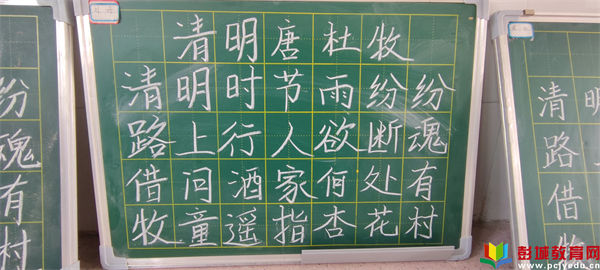 纷
魂
有
村
清明唐杜牧
清明时节雨纷纷
路上行人欲断魂
借问酒家何处有
牧童遥指杏花村
清明
路
借
彭城教育网